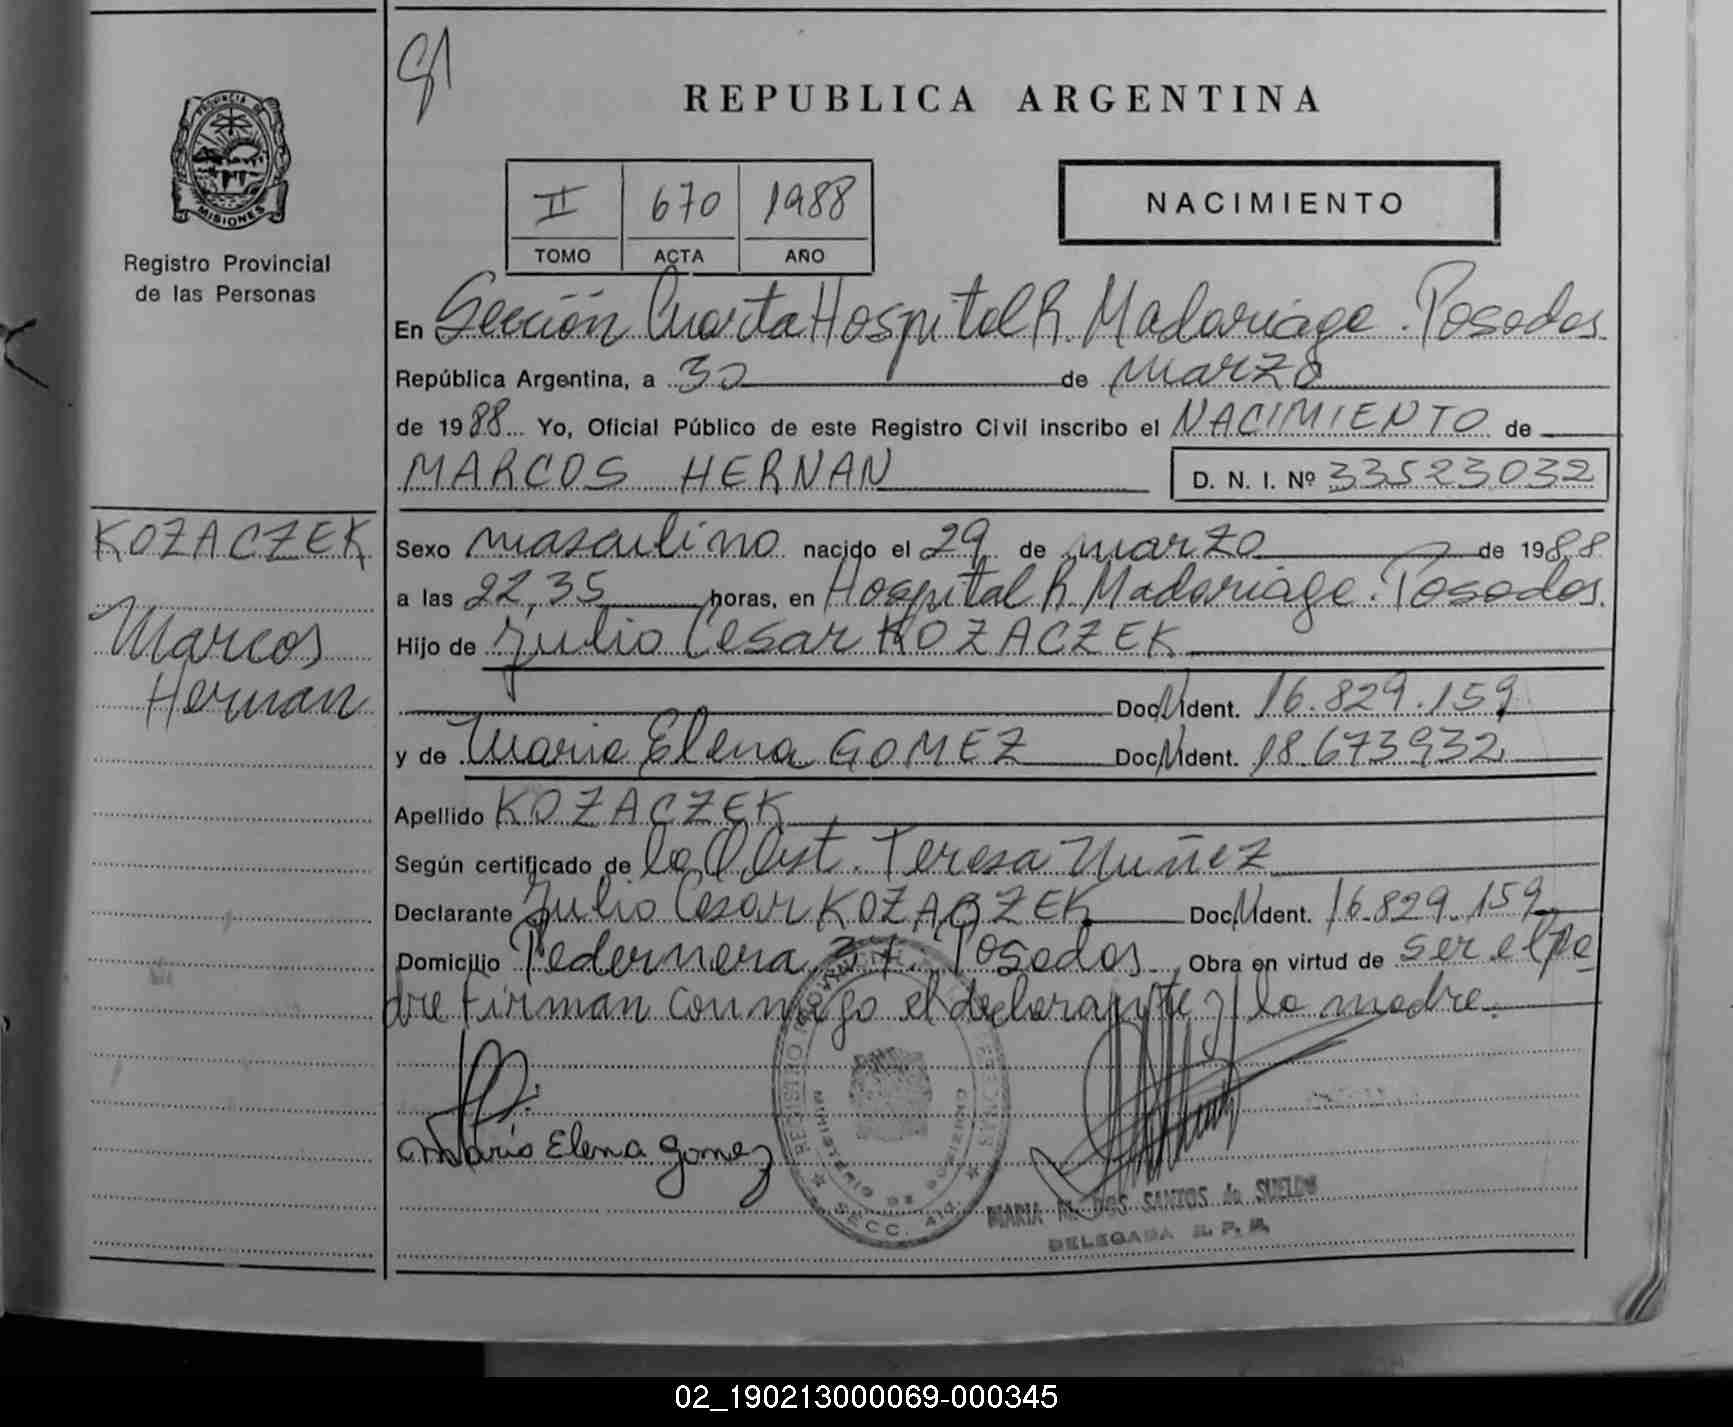 REPUBLICA ARGENTINA
PROVINCIA DE
MISIONES
Registro Provincial
de las Personas
II 670 1988
TOMO ACTA AÑO
NACIMIENTO
En Sección Cuarta Hospital R. Madariaga. Posadas
República Argentina, a 30 de marzo
de 1988 Yo, Oficial Público de este Registro Civil inscribo el NACIMIENTO de
MARCOS HERNAN D. N. I. Nº 33523032
KOZACZEK
Marcos
Hernan
Sexo masculino nacido el 29 de marzo de 1988
a las 22,35 horas, en Hospital R. Madariaga. Posadas.
Hijo de Julio Cesar KOZACZEK
Doc. Ident. 16.829.159
y de Maria Elena GOMEZ Doc. Ident. 18.673932
Apellido KOZACZEK
Según certificado de la Obst. Teresa Nuñez
Declarante Julio Cesar KOZACZEK Doc. Ident. 16.829.159
Domicilio Pedernera Posadas Obra en virtud de ser el pa
dre firman conmigo el declarante y la madre.
Maria Elena Gomez
MINISTERIO DE
SECC. 4ta.
MARIA DOS SANTOS de SUELDO
DELEGADA R. P. P.
02_190213000069-000345